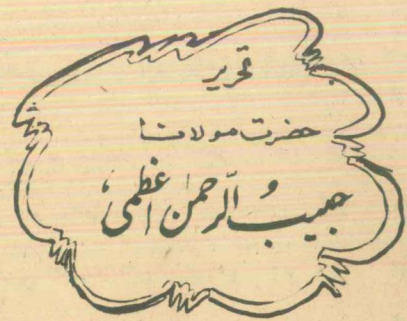 تحریر
حضرت مولانا
حبیبُ الرّحمٰن اعظمی،